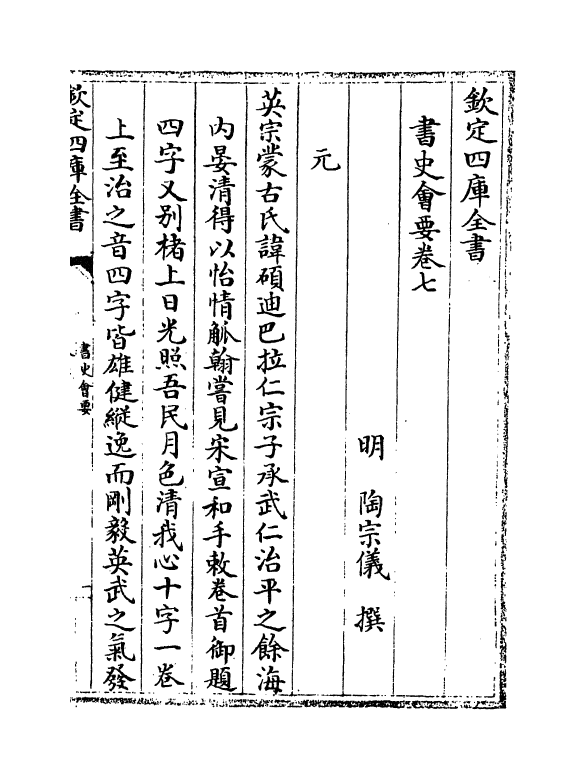 欽定四庫全書
書史會要卷七
明 陶宗儀 撰
元
英宗蒙古氏諱碩迪巴拉仁宗子承武仁治平之餘海
内晏清得以怡情觚翰嘗見宋宣和手敕卷首御題
四字又别楮上日光照吾民月色清我心十字一卷
上至治之音四字皆雄健縱逸而剛毅英武之氣發
欽定四庫全書
書史會要